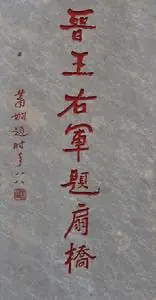 晉王右軍題扇橋
蕭嫻題時年八八